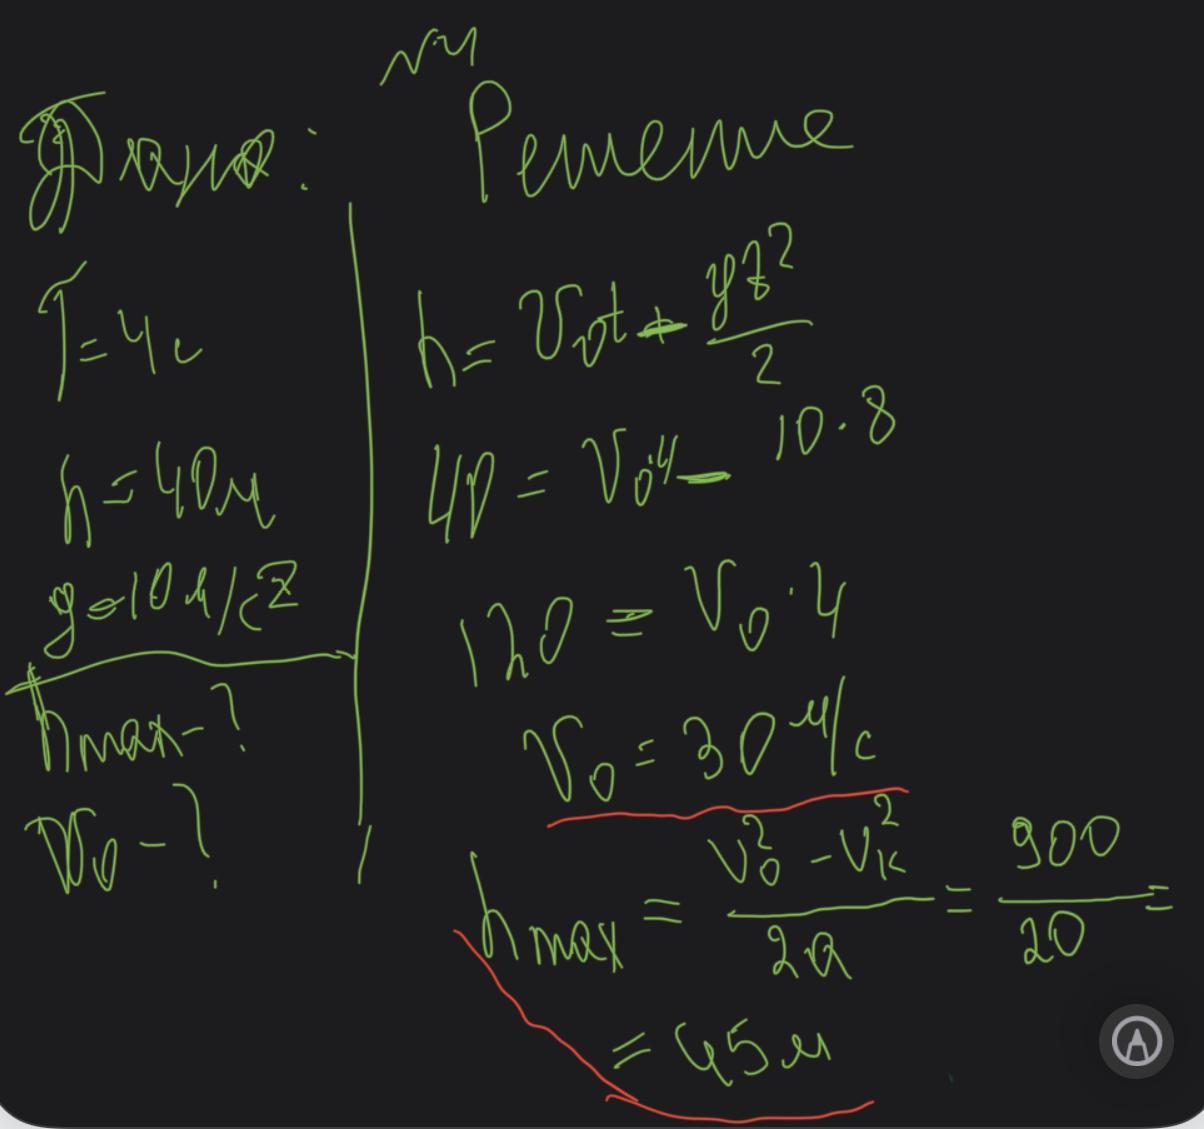 №4
Дано:
T = 4 с
h = 40 м
g = 10 м/с²
hmax - ?
V₀ - ?
Решение
h = V₀t - gt²/2
40 = V₀·4 - 10·8
120 = V₀·4
V₀ = 30 м/с
hmax = (V₀² - Vк²)/2a = 900/20 =
= 45 м